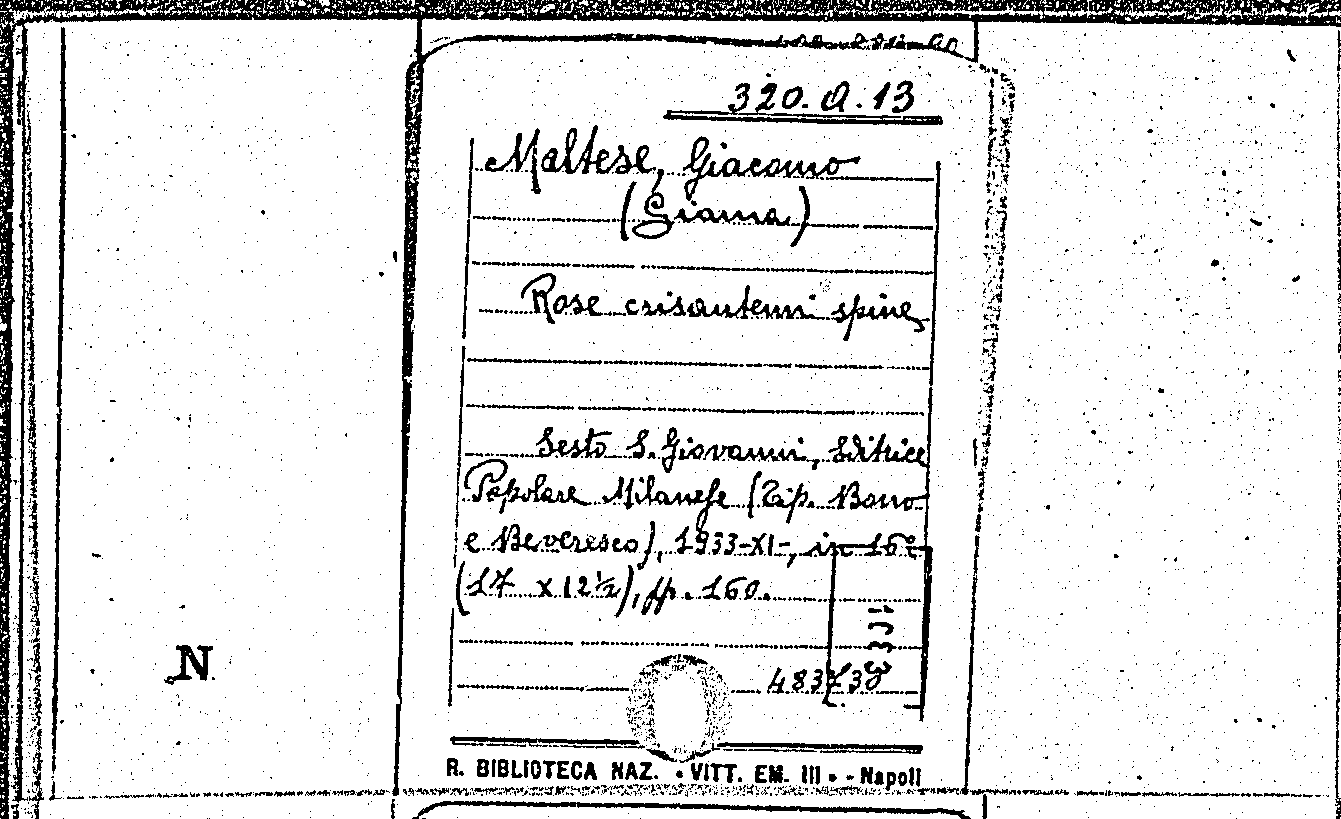 320.A.13
Maltese, Giacomo
(Giama)
Rose crisantemi spine
Sesto S. Giovanni, Editrice
Popolare Milanese (Tip. Bono
e Beveresco), 1933-XI-, in 16°
(17 x 12½), pp. 160.
N
R. BIBLIOTECA NAZ. • VITT. EM. III • - Napoli